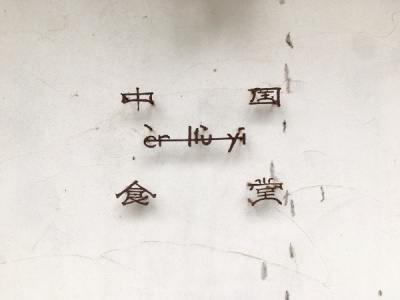 中国
èr liù yī
食堂